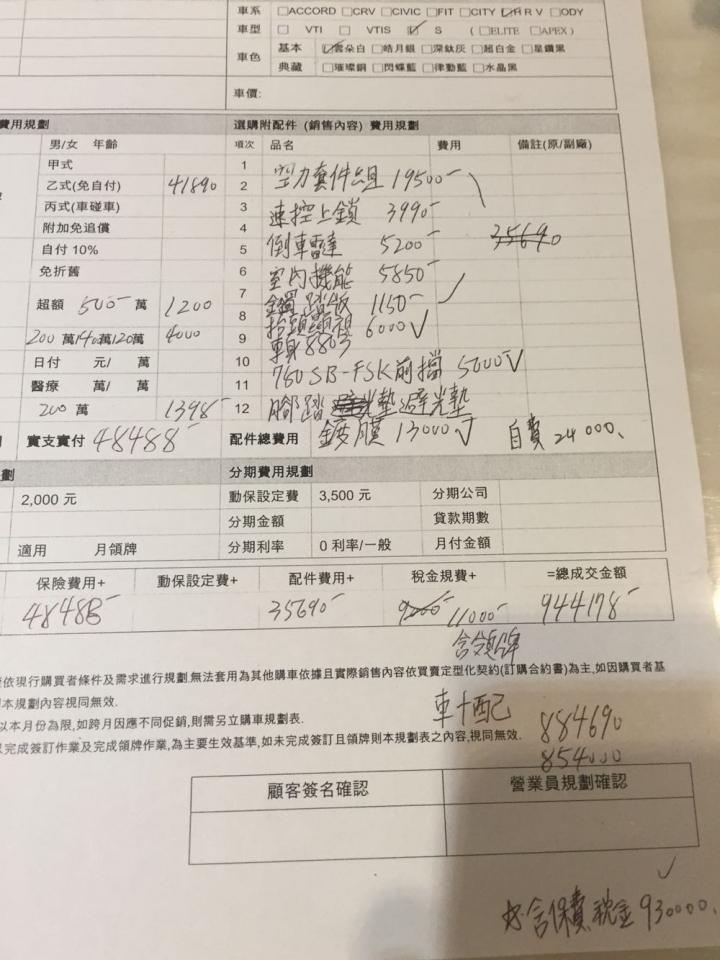 車系 □ACCORD □CRV □CIVIC □FIT □CITY ☑H R V □ODY
車型 □ VTI □ VTIS ☑ S (□ELITE □APEX)
車色 基本 ☑雲朵白 □皓月銀 □深鈦灰 □超白金 □星鑽黑
典藏 □璀璨銅 □閃蝶藍 □律動藍 □水晶黑
車價:
費用規劃 選購附配件 (銷售內容) 費用規劃
男/女 年齡 項次 品名 費用 備註(原/副廠)
甲式 1
乙式(免自付) 41890 2 空力套件組 19500
丙式(車碰車) 3 速控上鎖 3990
附加免追償 4
自付 10% 5 倒車雷達 5200 35690
免折舊 6 室內機能 5850
超額 500 萬 1200 7 踏板 1150
8 抬頭顯視 6000
200 萬/40萬/120萬 4000 9 車身8803
日付 元/ 萬 10 760SB-FSK前擋 5000
醫療 萬/ 萬 11
200 萬 1398 12 腳踏墊 避光墊
實支實付 48488 配件總費用 鍍膜 13000 自費 24000、
劃 分期費用規劃
2,000 元 動保設定費 3,500 元 分期公司
分期金額 貸款期數
適用 月領牌 分期利率 0 利率/一般 月付金額
保險費用+ 動保設定費+ 配件費用+ 稅金規費+ =總成交金額
48488 35690 9200 11000 944178
含領牌
依現行購買者條件及需求進行規劃,無法套用為其他購車依據且實際銷售內容依買賣定型化契約(訂購合約書)為主,如因購買者基
本規劃內容視同無效.
以本月份為限,如跨月因應不同促銷,則需另立購車規劃表.
車+配 884690
以完成簽訂作業及完成領牌作業,為主要生效基準,如未完成簽訂且領牌則本規劃表之內容,視同無效.
854000
顧客簽名確認 營業員規劃確認
含保費 稅金 930000、